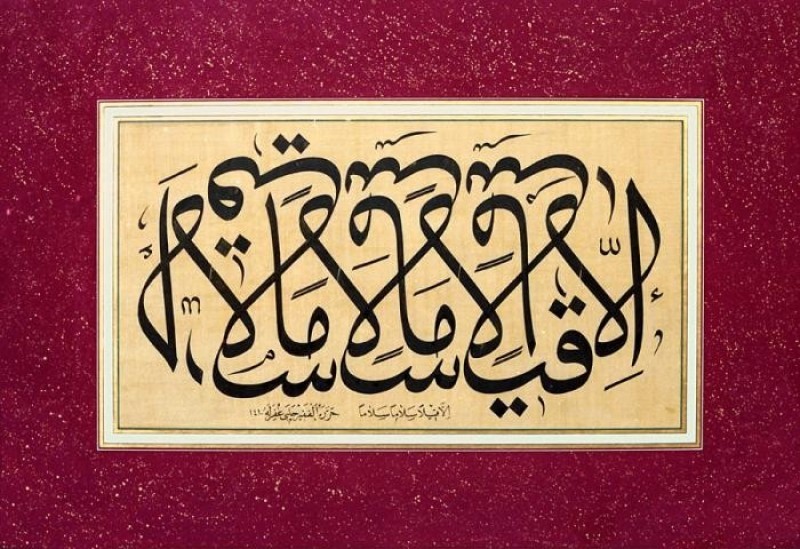 إِلَّا قِيلًا سَلَامًا سَلَامًا
إلا قيلا سلاما سلاما حرره الفقير غفرله